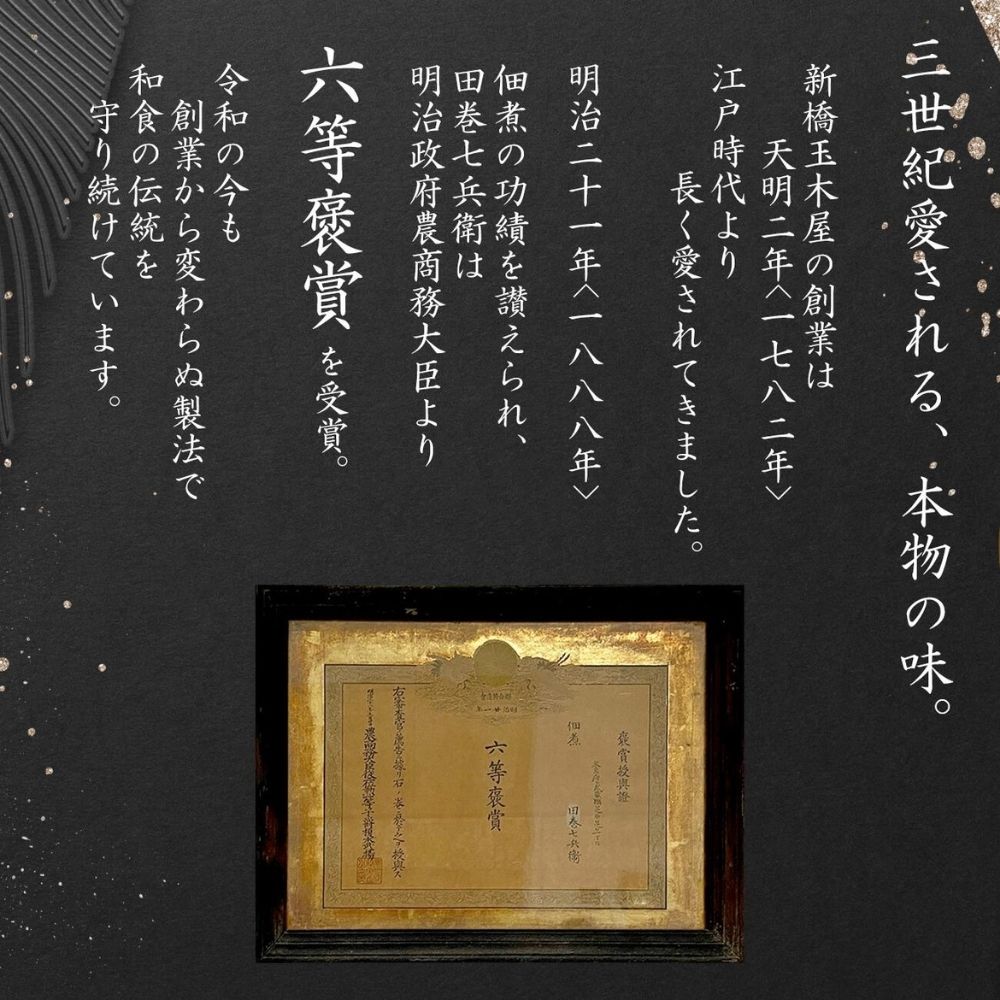 三世紀愛される、本物の味。
新橋玉木屋の創業は
天明二年〈一七八二年〉
江戸時代より
長く愛されてきました。
明治二十一年〈一八八八年〉
佃煮の功績を讃えられ、
田巻七兵衛は
明治政府農商務大臣より
六等褒賞を受賞。
令和の今も
創業から変わらぬ製法で
和食の伝統を
守り続けています。
褒賞授與證
佃煮
田巻七兵衞
六等褒賞